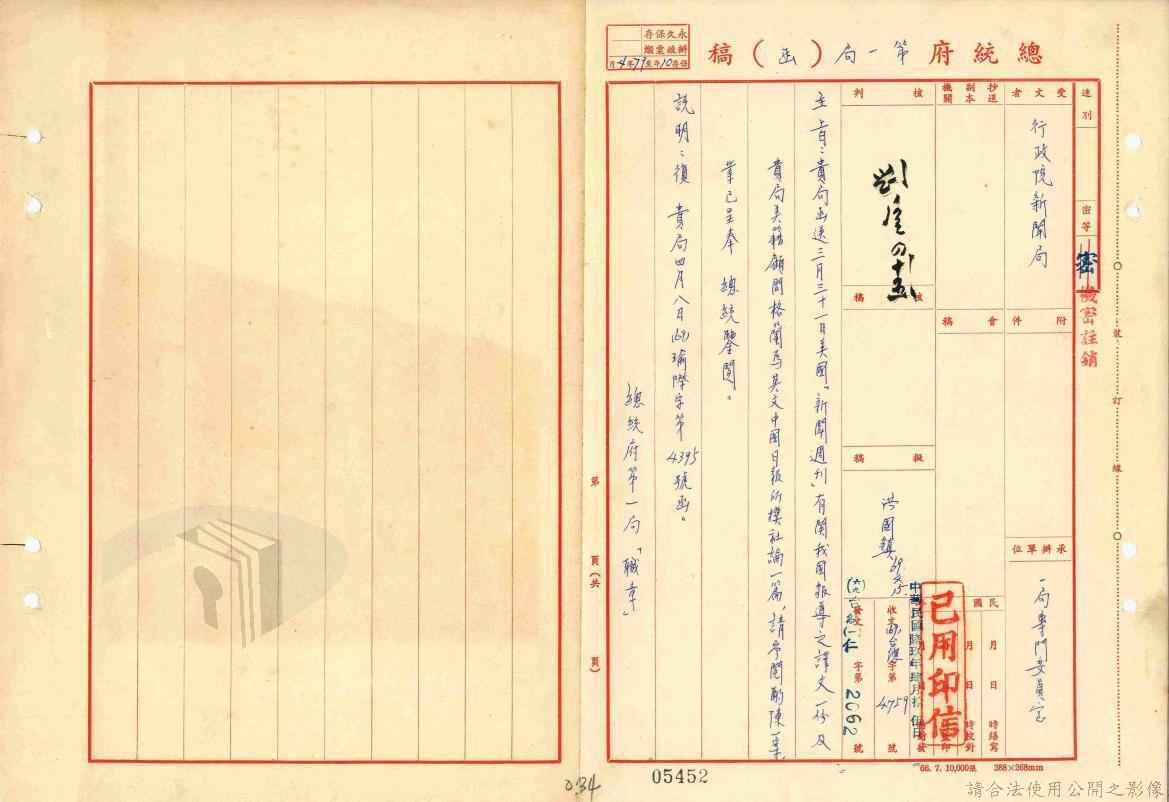 總統府第一局（函）稿
永久保存
辦後彙繳
保存10年至79年4月
速別
密等
密
機密註銷
受文者
行政院新聞局
抄送
副本
機關
附件
會稿
承辦單位
一局專門委員室
核判
核稿
擬稿
洪國鎮
民國
月 日 時繕寫
月 日 時校對
中華民國陸玖年肆月拾伍日
已用印信
收文(69)台總字第4759號
發文(六九)台統(一)仁字第2062號
主旨：貴局函送三月三十一日美國「新聞週刊」有關我國報導之譯文一份及
貴局美籍顧問格蘭為英文中國日報所撰社論一篇，請予閱酌陳一案
業已呈奉 總統鑒閱。
說明：復 貴局四月八日(69)瑜際字第4395號函。
總統府第一局「職章」
裝
訂
線
第 頁(共 頁)
66. 7. 10,000張 388×268mm
05452
034
請合法使用公開之影像